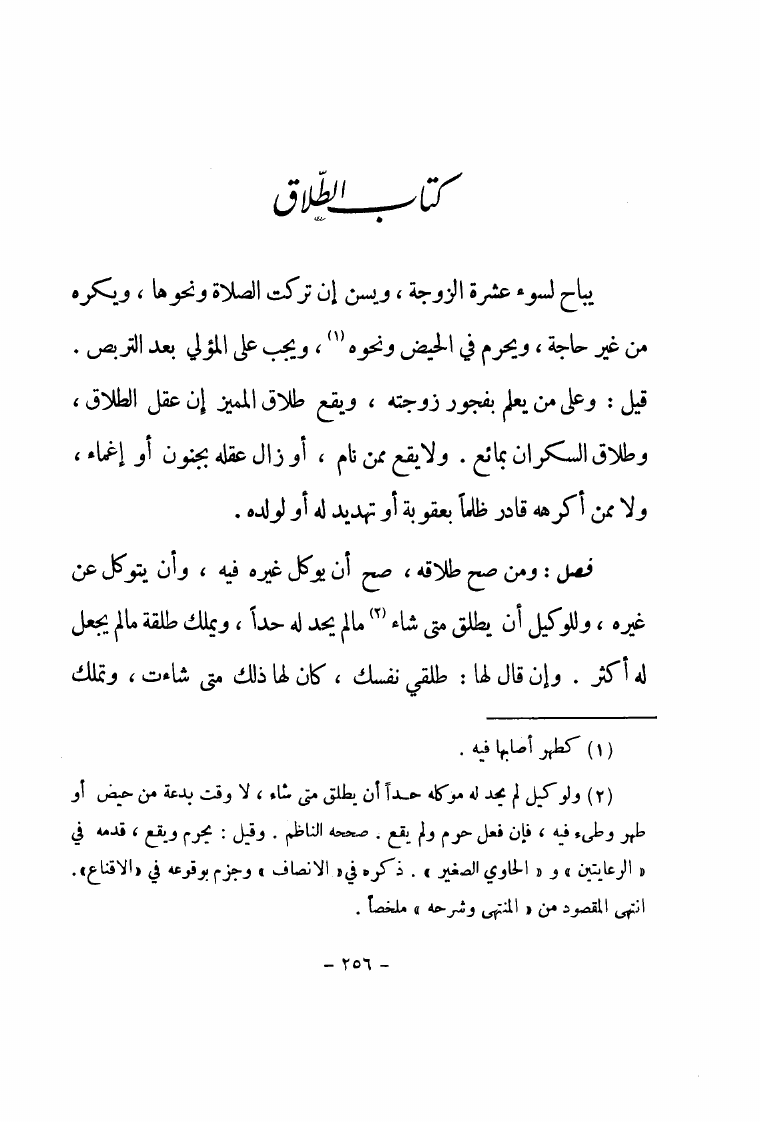 كتاب الطّلاق
يباح لسوء عشرة الزوجة ، ويسن إن تركت الصلاة ونحوها ، ويكره
من غير حاجة ، ويحرم في الحيض ونحوه (١) ، ويجب على المؤلي بعد التربص .
قيل : وعلى من يعلم بفجور زوجته ، ويقع طلاق المميز إن عقل الطلاق ،
وطلاق السكران بمائع . ولا يقع ممن نام ، أو زال عقله بجنون أو إغماء ،
ولا ممن أكرهه قادر ظلماً بعقوبة أو تهديد له أو لولده .
فصل : ومن صح طلاقه ، صح أن يوكل غيره فيه ، وأن يتوكل عن
غيره ، وللوكيل أن يطلق متى شاء (٢) مالم يحد له حداً ، ويملك طلقة مالم يجعل
له أكثر . وإن قال لها : طلقي نفسك ، كان لها ذلك متى شاءت ، وتملك
(١) كطهر أصابها فيه .
(٢) ولو كيل لم يحد له موكله حداً أن يطلق متى شاء ، لا وقت بدعة من حيض أو
طهر وطىء فيه ، فإن فعل حرم ولم يقع . صححه الناظم . وقيل : يحرم ويقع ، قدمه في
« الرعايتين » و « الحاوي الصغير » . ذكره في « الانصاف » وجزم بوقوعه في « الاقناع » .
انتهى المقصود من « المنتهى وشرحه » ملخصاً .
– ٢٥٦ –